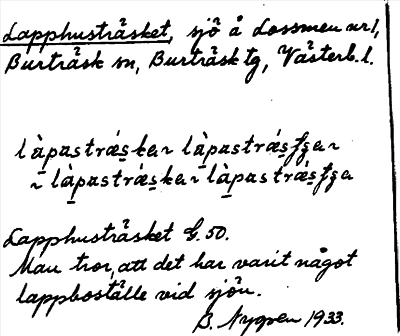 Lapphusträsket, sjö å Lossmen nr 1,
Burträsk sn, Burträsk tg, Västerb. l.
làpastrǽska ~ làpastrǽsʃʒa ~
~ làpastrǽska ~ làpastrǽsʃʒa
Lapphusträsket G. 50.
Man tror, att det har varit något
lappboställe vid sjön.
B. Nygren 1933.